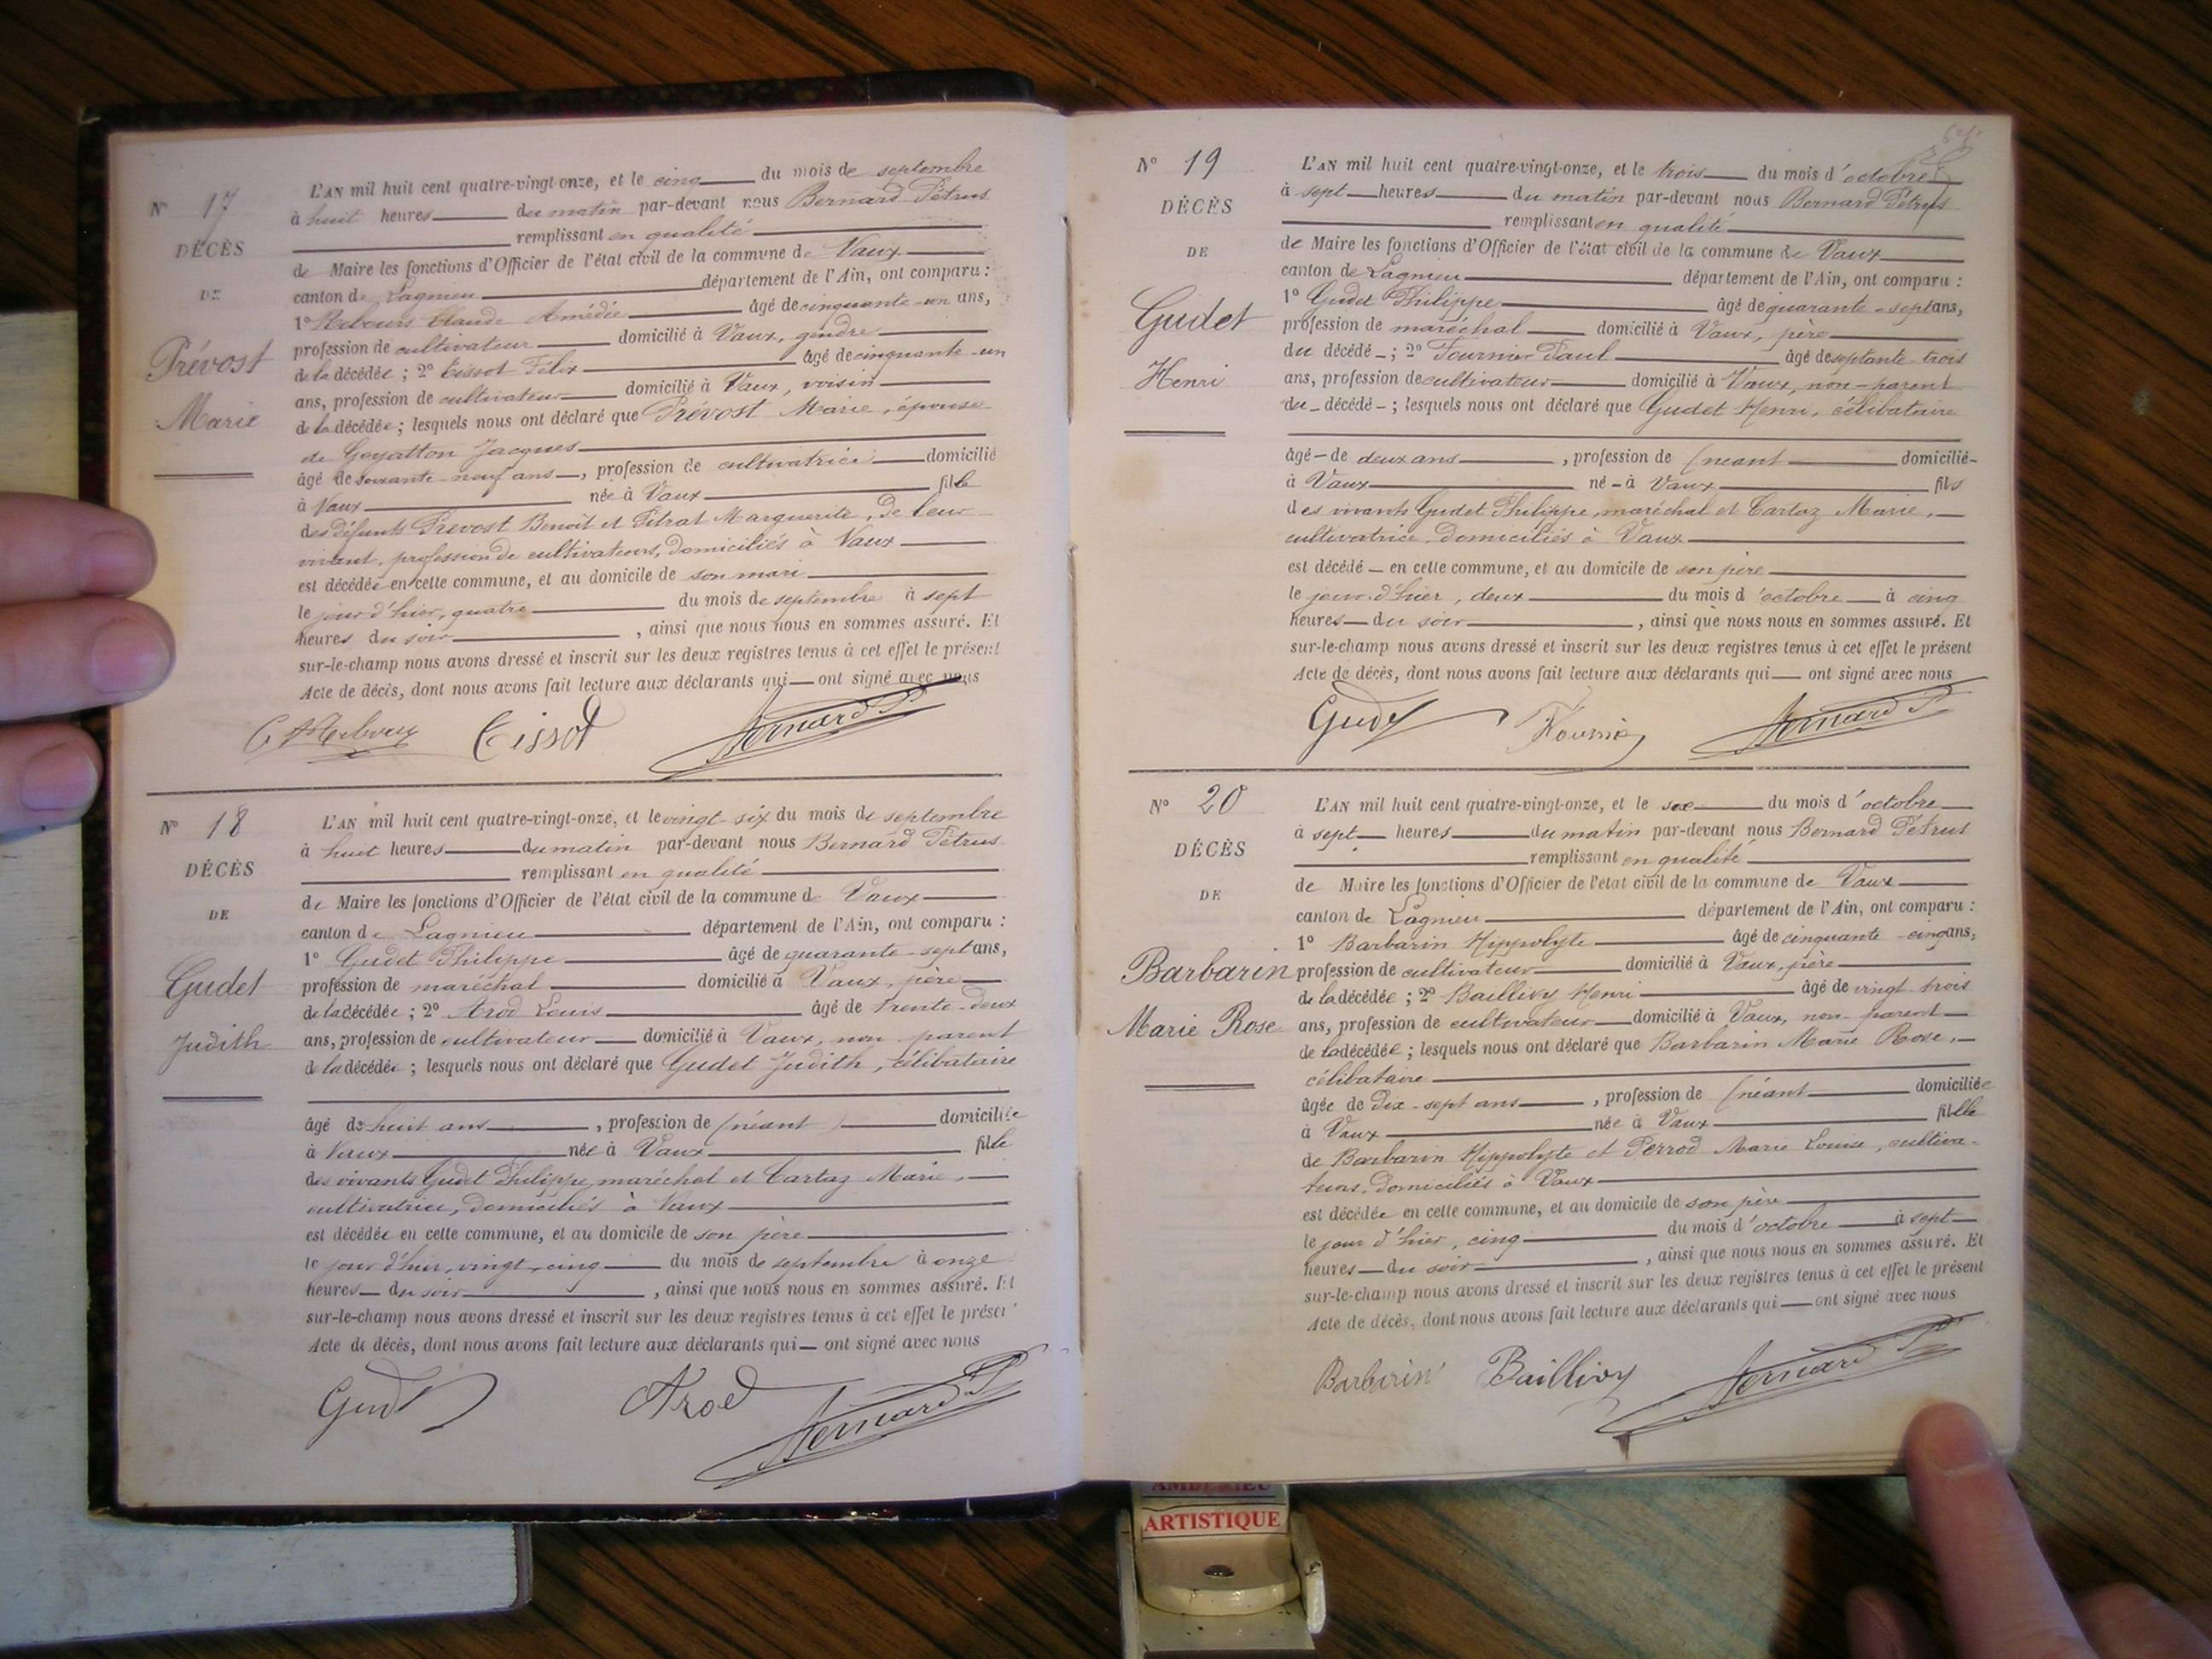 N° 17
DÉCÈS
DE
Prévost
Marie
L'AN mil huit cent quatre-vingt-onze, et le cinq du mois de septembre
à huit heures du matin par-devant nous Bernard Pétrus
remplissant en qualité
de Maire les fonctions d'Officier de l'état civil de la commune de Vaux
canton de Lagnieu département de l'Ain, ont comparu :
1° Claude Amédée âgé de cinquante-un ans,
profession de cultivateur domicilié à Vaux, gendre
de la décédée ; 2° Tissot Félix âgé de cinquante-un
ans, profession de cultivateur domicilié à Vaux, voisin
de la décédée ; lesquels nous ont déclaré que Prévost Marie, épouse
de Goyatton Jacques
âgé de soixante-neuf ans, profession de cultivatrice domicilié
à Vaux née à Vaux fille
des défunts Prévost Benoît et Pitrat Marguerite, de leur
vivant, profession de cultivateurs, domiciliés à Vaux
est décédée en cette commune, et au domicile de son mari
le jour d'hier, quatre du mois de septembre à sept
heures du soir, ainsi que nous nous en sommes assuré. Et
sur-le-champ nous avons dressé et inscrit sur les deux registres tenus à cet effet le présent
Acte de décès, dont nous avons fait lecture aux déclarants qui ont signé avec nous
Tissot Bernard P.
N° 18
DÉCÈS
DE
Gudet
Judith
L'AN mil huit cent quatre-vingt-onze, et le vingt-six du mois de septembre
à huit heures du matin par-devant nous Bernard Pétrus
remplissant en qualité
de Maire les fonctions d'Officier de l'état civil de la commune de Vaux
canton de Lagnieu département de l'Ain, ont comparu :
1° Gudet Philippe âgé de quarante-sept ans,
profession de maréchal domicilié à Vaux, père
de la décédée ; 2° Arod Louis âgé de trente-deux
ans, profession de cultivateur domicilié à Vaux, non parent
de la décédée ; lesquels nous ont déclaré que Gudet Judith, célibataire
âgé de huit ans, profession de (néant) domiciliée
à Vaux née à Vaux fille
des vivants Gudet Philippe, maréchal et Cartaz Marie,
cultivatrice, domiciliés à Vaux
est décédée en cette commune, et au domicile de son père
le jour d'hier, vingt-cinq du mois de septembre à onze
heures du soir, ainsi que nous nous en sommes assuré. Et
sur-le-champ nous avons dressé et inscrit sur les deux registres tenus à cet effet le présent
Acte de décès, dont nous avons fait lecture aux déclarants qui ont signé avec nous
Gudet Arod Bernard P.
N° 19
DÉCÈS
DE
Gudet
Henri
L'AN mil huit cent quatre-vingt-onze, et le trois du mois d'octobre
à sept heures du matin par-devant nous Bernard Pétrus
remplissant en qualité
de Maire les fonctions d'Officier de l'état civil de la commune de Vaux
canton de Lagnieu département de l'Ain, ont comparu :
1° Gudet Philippe âgé de quarante-sept ans,
profession de maréchal domicilié à Vaux, père
du décédé ; 2° Fournier Paul âgé de septante-trois
ans, profession de cultivateur domicilié à Vaux, non-parent
du décédé ; lesquels nous ont déclaré que Gudet Henri, célibataire
âgé de deux ans, profession de (néant domicilié
à Vaux né à Vaux fils
des vivants Gudet Philippe, maréchal et Cartaz Marie,
cultivatrice, domiciliés à Vaux
est décédé en cette commune, et au domicile de son père
le jour d'hier, deux du mois d'octobre à cinq
heures du soir, ainsi que nous nous en sommes assuré. Et
sur-le-champ nous avons dressé et inscrit sur les deux registres tenus à cet effet le présent
Acte de décès, dont nous avons fait lecture aux déclarants qui ont signé avec nous
Gudet Fournier Bernard P.
N° 20
DÉCÈS
DE
Barbarin
Marie Rose
L'AN mil huit cent quatre-vingt-onze, et le six du mois d'octobre
à sept heures du matin par-devant nous Bernard Pétrus
remplissant en qualité
de Maire les fonctions d'Officier de l'état civil de la commune de Vaux
canton de Lagnieu département de l'Ain, ont comparu :
1° Barbarin Hippolyte âgé de cinquante-cinq ans,
profession de cultivateur domicilié à Vaux, père
de la décédée ; 2° Baillivy Henri âgé de vingt-trois
ans, profession de cultivateur domicilié à Vaux, non-parent
de la décédée ; lesquels nous ont déclaré que Barbarin Marie Rose,
célibataire
âgée de dix-sept ans, profession de (néant domiciliée
à Vaux née à Vaux fille
de Barbarin Hippolyte et Perrod Marie Louise, cultiva-
teurs, domiciliés à Vaux
est décédée en cette commune, et au domicile de son père
le jour d'hier, cinq du mois d'octobre à sept
heures du soir, ainsi que nous nous en sommes assuré. Et
sur-le-champ nous avons dressé et inscrit sur les deux registres tenus à cet effet le présent
Acte de décès, dont nous avons fait lecture aux déclarants qui ont signé avec nous
Barbarin Baillivy Bernard P.
ARTISTIQUE